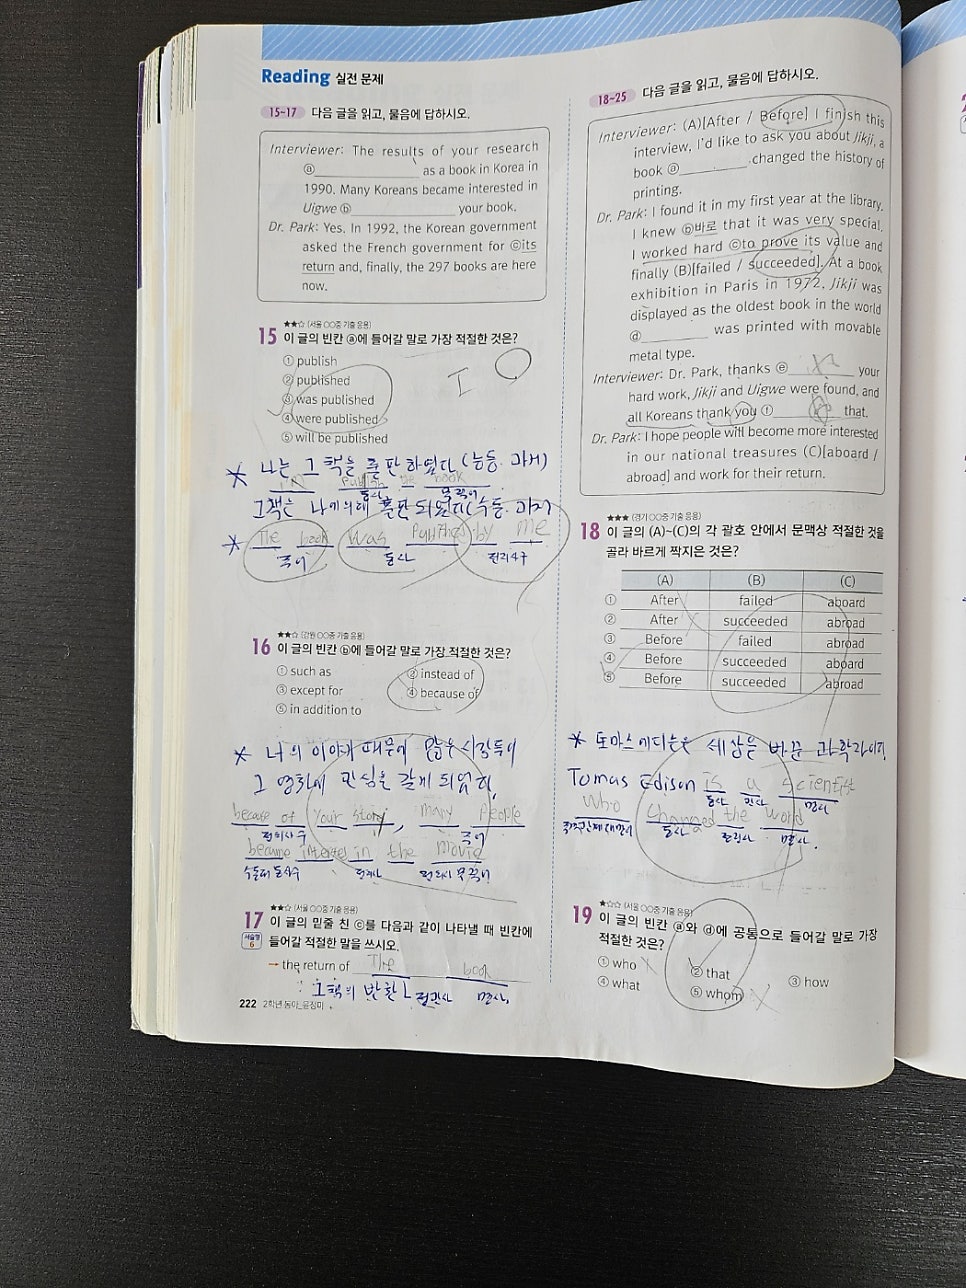 Reading 실전 문제
15~17 다음 글을 읽고, 물음에 답하시오.
Interviewer: The results of your research
ⓐ____________ as a book in Korea in
1990. Many Koreans became interested in
Uigwe ⓑ____________ your book.
Dr. Park: Yes. In 1992, the Korean government
asked the French government for ⓒits
return and, finally, the 297 books are here
now.
★★☆ (서울 ○○중 기출 응용)
15 이 글의 빈칸 ⓐ에 들어갈 말로 가장 적절한 것은?
① publish
② published
③ was published
④ were published
⑤ will be published
* 나는 그 책을 출판하였다 (능동. 과거)
동사 목적어
그책은 나에의해 출판 되었다 (수동. 과거)
* The book was by me
주어 동사 전치사구
★★☆ (강원 ○○중 기출 응용)
16 이 글의 빈칸 ⓑ에 들어갈 말로 가장 적절한 것은?
① such as ② instead of
③ except for ④ because of
⑤ in addition to
* 너의 이야기 때문에 많은 사람들이
그 영화에 관심을 갖게 되었다.
because of your story, many people
전치사구 주어
became in the movie
전치사
★★☆ (서울 ○○중 기출 응용)
17 이 글의 밑줄 친 ⓒ를 다음과 같이 나타낼 때 빈칸에
서술형 6 들어갈 적절한 말을 쓰시오.
→ the return of The book
그책의 반환 명사
222 2학년 동아_윤정미
18~25 다음 글을 읽고, 물음에 답하시오.
Interviewer: (A)[After / Before] I finish this
interview, I'd like to ask you about Jikji, a
book ⓐ________ changed the history of
printing.
Dr. Park: I found it in my first year at the library.
I knew ⓑ바로 that it was very special.
I worked hard ⓒto prove its value and
finally (B)[failed / succeeded]. At a book
exhibition in Paris in 1972, Jikji was
displayed as the oldest book in the world
ⓓ________ was printed with movable
metal type.
Interviewer: Dr. Park, thanks ⓔ________ your
hard work, Jikji and Uigwe were found, and
all Koreans thank you ⓕ________ that.
Dr. Park: I hope people will become more interested
in our national treasures (C)[aboard /
abroad] and work for their return.
★★★ (경기 ○○중 기출 응용)
18 이 글의 (A)~(C)의 각 괄호 안에서 문맥상 적절한 것을
골라 바르게 짝지은 것은?
(A) (B) (C)
① After failed aboard
② After succeeded abroad
③ Before failed abroad
④ Before succeeded aboard
⑤ Before succeeded abroad
* 토마스 에디슨은 세상을 바꾼 과학자이다
Tomas Edison is a scientist
동사 관사 명사
who changed the world
동사 명사.
★☆☆ (서울 ○○중 기출 응용)
19 이 글의 빈칸 ⓐ와 ⓓ에 공통으로 들어갈 말로 가장
적절한 것은?
① who ② that ③ how
④ what ⑤ whom